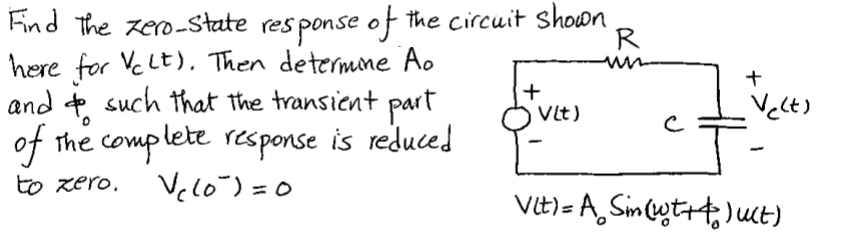 Find the zero-state response of the circuit shown
here for Vc(t). Then determine A₀
and ϕ₀ such that the transient part
of the complete response is reduced
to zero. Vc(0⁻) = 0
R
+
V(t)
-
C
+
Vc(t)
-
V(t) = A₀ Sin(ω₀t+ϕ₀)u(t)